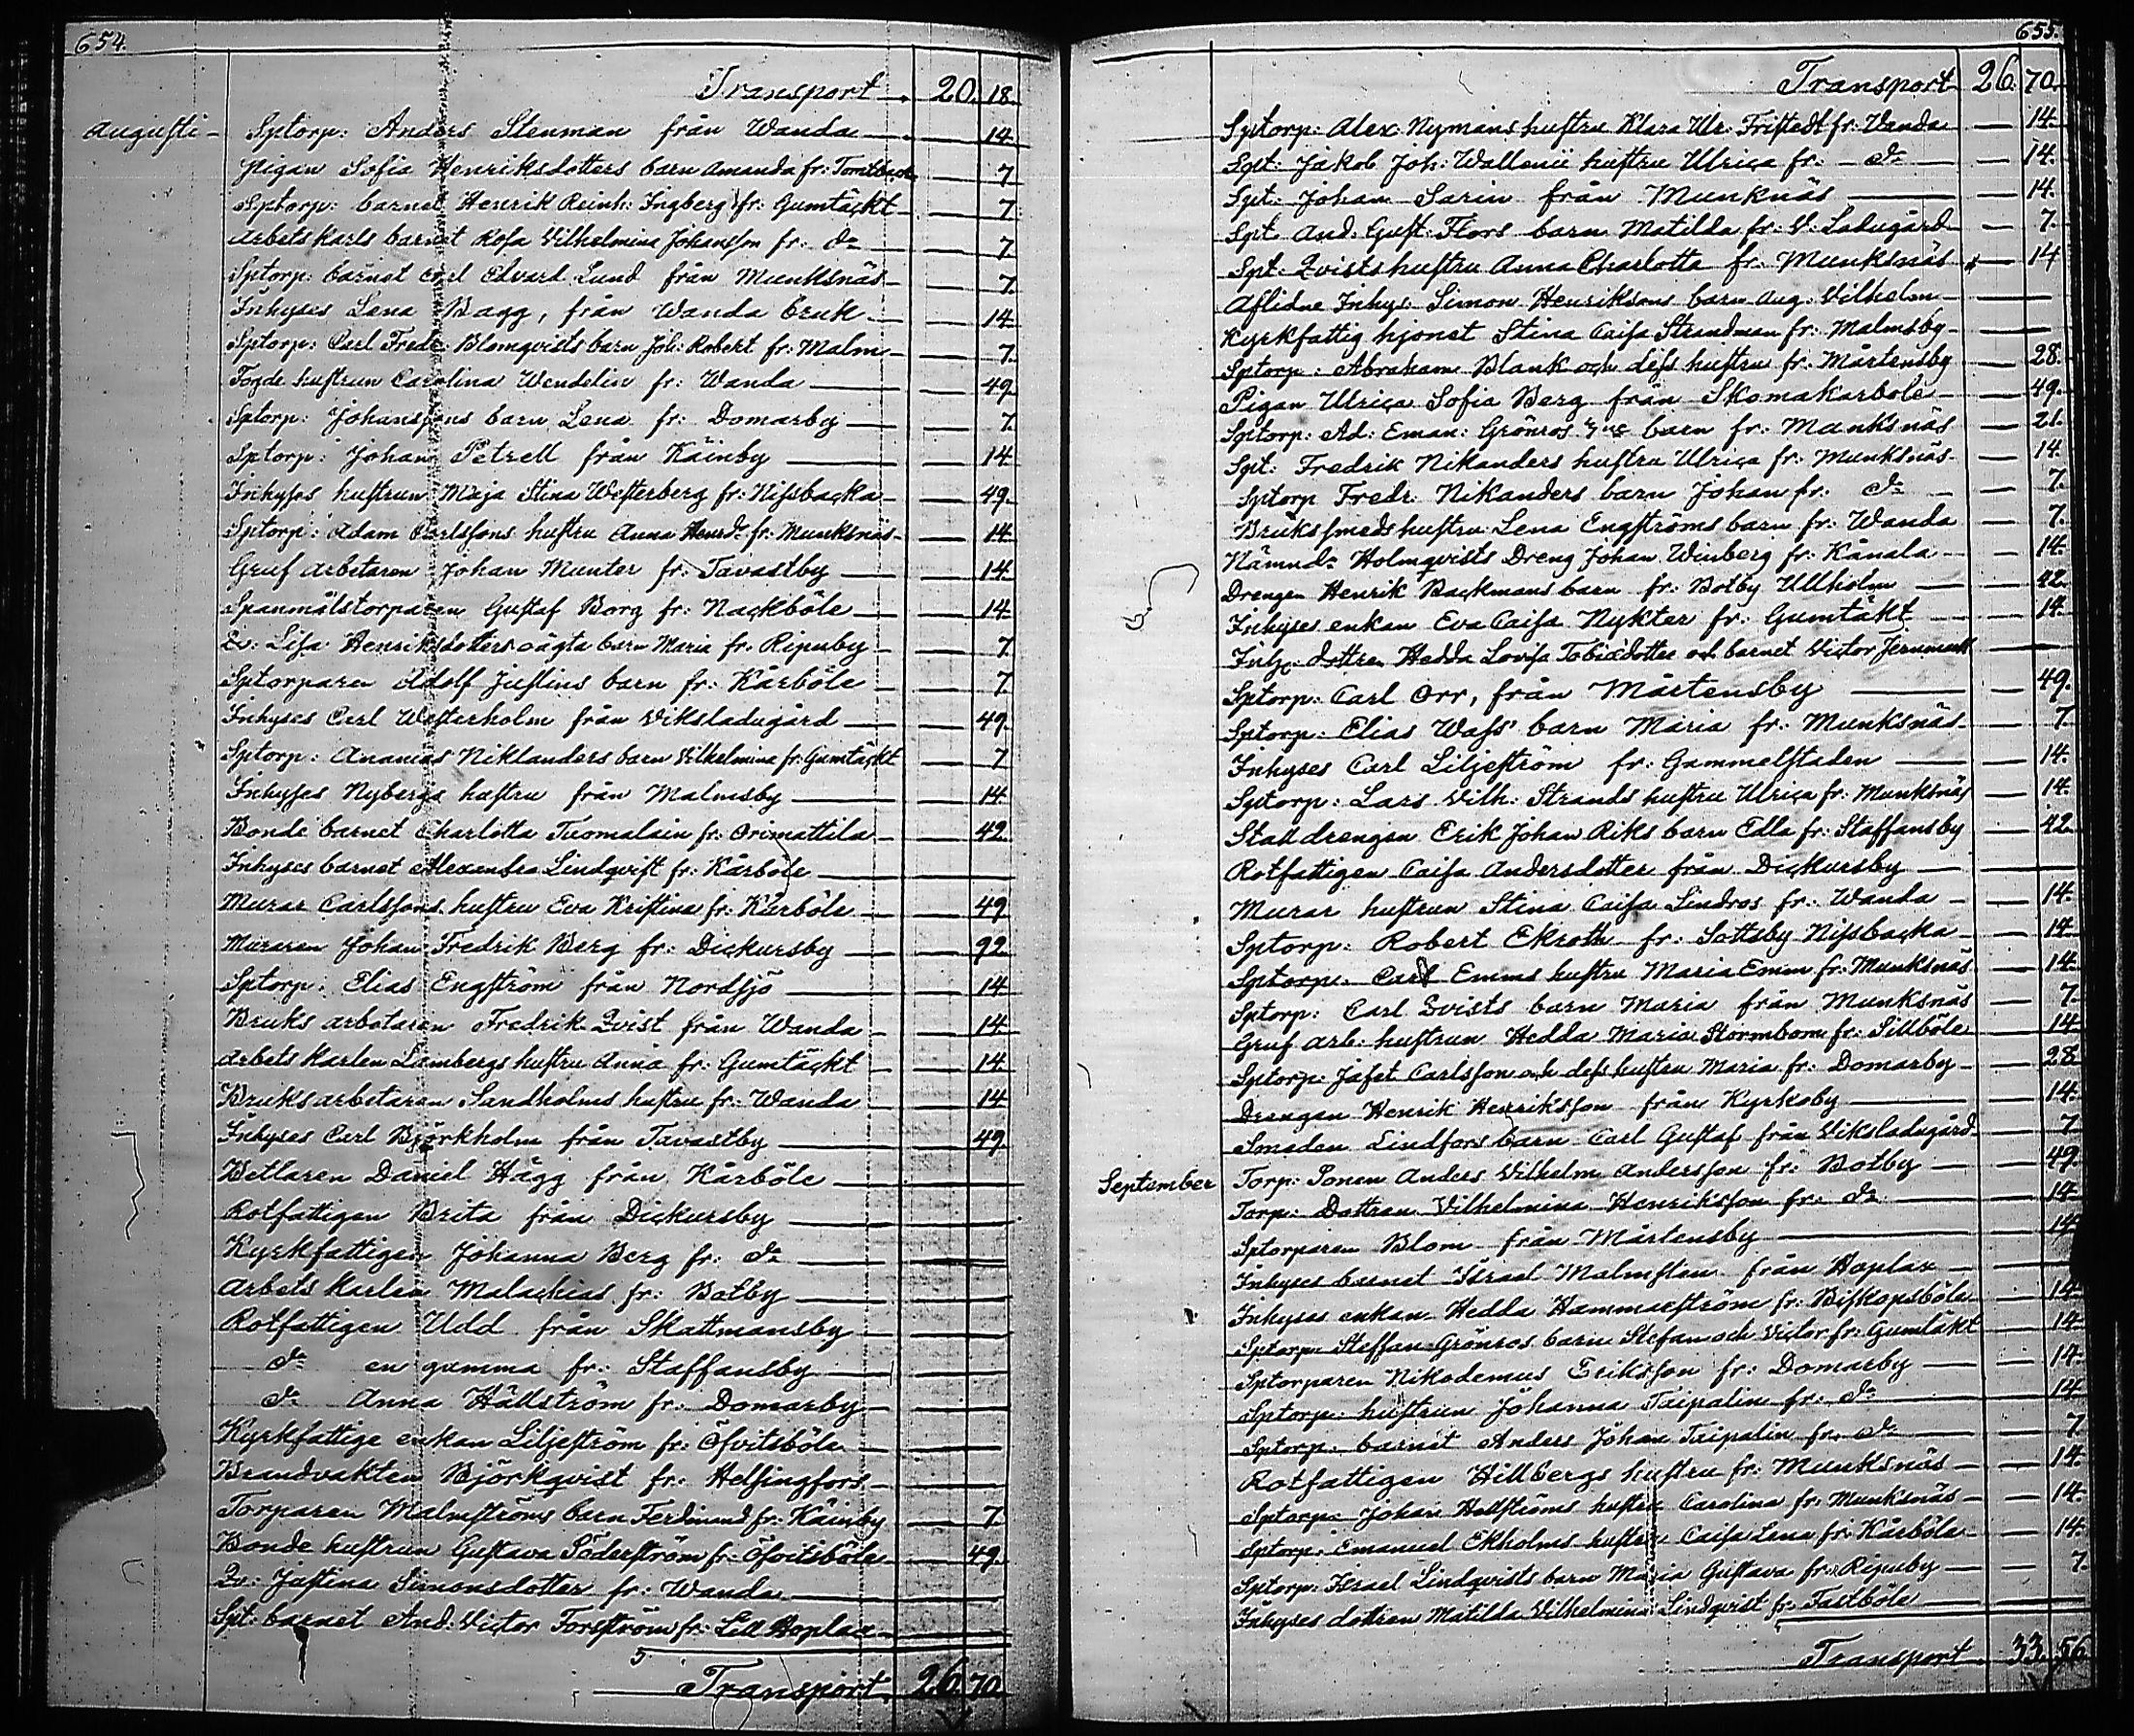 654.
Transport 20. 18.
Augusti Sptorp: Anders Stenman från Wanda 14.
Pigan Sofia Henriksdotters barn Amanda fr: Tomtbacka 7
Sptorp: barnet Henrik Reinh: Ingberg fr: Gumtäckt 7
Arbetskarls barnet Rosa Vilhelmina Johansson fr: do 7.
Sptorp: barnet Carl Edvard Lund från Munksnäs 7.
Inhyses Lena Bagg, från Wanda bruk 14
Sptorp: Carl Fredr: Blomqvists barn Joh: Robert fr: Malm 7.
Fogde hustrun Carolina Wendelin fr: Wanda 49
Sptorp: Johanssons barn Lena fr: Domarby 7.
Sptorp: Johan Petrell från Käinby 14
Inhyses hustrun Maja Stina Westerberg fr: Nissbacka 49.
Sptorp: Adam Carlssons hustru Anna Henrd: fr: Munksnäs 14
Gruf arbetaren Johan Munter fr: Tavastby 14
Spanmålstorparen Gustaf Borg fr: Nackböle 14
Qv: Lisa Henriksdotters oägta barn Maria fr. Ripuby 7
Sptorparen Adolf Justins barn fr: Kårböle 7
Inhyses Carl Westerholm från Viksladugård 49.
Sptorp: Ananias Niklanders barn Vilhelmina fr: Gumtäckt 7
Inhyses Nybergs hustru från Malmsby 14
Bonde barnet Charlotta Tuomalain fr: Orimattila 42.
Inhyses barnet Alexandra Lindqvist fr: Kårböle
Murar Carlssons hustru Eva Kristina fr: Kårböle 49
Muraren Johan Fredrik Berg fr: Dickursby 92.
Sptorp: Elias Engström från Nordsjö 14
Bruks arbetaren Fredrik Qvist från Wanda 14
Arbets karlen Lambergs hustru Anna fr: Gumtäckt 14.
Bruks arbetaren Sandholms hustru fr: Wanda 14
Inhyses Carl Björkholm från Tavastby 49.
Betlaren Daniel Hägg från Kårböle
Rotfattigen Brita från Dickursby
Kyrkfattigen Johanna Berg fr: do
Arbets karlen Malachias fr: Botby
Rotfattigen Udd från Skattmansby
do en gumma fr: Staffansby
do Anna Hällström fr: Domarby
Kyrkfattige enkan Liljeström fr: Öfvitsböle
Brandvakten Björkqvist fr: Helsingfors
Torparen Malmströms barn Ferdinand fr: Käinby 7
Bonde hustrun Gustava Söderström fr: Öfvitsböle 49.
Qv: Justina Simonsdotter fr: Wanda
Spt: barnet And: Victor Forsström fr: Lill Hoplax
Transport 26 70
655.
Transport 26. 70.
Sptorp: Alex: Nymans hustru Klara Ulr: Fristedt fr: Wanda 14.
Spt: Jakob Joh: Wallenii hustru Ulrica fr: do 14.
Spt: Johan Sarin från Munknäs 14.
Spt And: Gust: Flors barn Matilda fr: V: Ladugård 7.
Spt: Qvists hustru Anna Charlotta fr: Munksnäs 14
Aflidne Inhys: Simon Henriksons barn Aug: Vilhelm
Kyrkfattig hjonet Stina Caisa Strandman fr: Malmsby
Sptorp: Abraham Blank och dess hustru fr: Mårtensby 28.
Pigan Ulrica Sofia Berg från Skomakarböle 49.
Sptorp: Ad: Eman: Grönros barn fr: Munksnäs 21.
Spt: Fredrik Nikanders hustru Ulrica fr: Munksnäs 14
Sptorp Fredr. Nikanders barn Johan fr: do 7.
Bruks smeds hustru Lena Engströms barn fr: Wanda 7.
Nämnd: Holmqvists Dreng Johan Winberg fr: Kånala 14.
Drengen Henrik Backmans barn fr: Botby Ullholm 42.
Inhyses enkan Eva Caisa Nykter fr: Gumtäkt 14.
dottren Hedda Lovisa Tobiædotter och barnet Victor Jernmark
Sptorp: Carl Orr, från Mårtensby 49.
Sptorp: Elias Wass' barn Maria fr: Munksnäs 7
Inhyses Carl Liljeström fr: Gammelstaden 14.
Sptorp: Lars Vilh: Strands hustru Ulrica fr: Munksnäs 14.
Stalldrengen Erik Johan Riks barn Edla fr: Staffansby 42.
Rotfattigen Caisa Andersdotter från Dickursby
Murar hustrun Stina Caisa Lindros fr: Wanda 14.
Sptorp: Robert Ekroth fr: Sottsby Nissbacka 14
Sptorp: Carl Emms hustru Maria Emm fr: Munksnäs 14
Sptorp: Carl Qvists barn Maria från Munksnäs 7.
Gruf arb: hustrun Hedda Maria Stormbom fr: Sillböle 14
Sptorp: Jafet Carlsson och dess hustru Maria fr: Domarby 28
Drengen Henrik Henriksson från Kyrkoby 14.
Smeden Lindfors barn Carl Gustaf från Viksladugård 7
September Torp: Sonen Anders Vilhelm Andersson fr: Botby 49.
Torp: Dottren Vilhelmina Henriksson fr: do 14
Sptorparen Blom från Mårtensby 14
Inhyses barnet Israel Malmsten från Hoplax
Inhyses enkan Hedda Hammarström fr: Biskopsböle 14
Sptorp: Steffan Grönros barn Stefan och Victor fr: Gumtäkt 14
Sptorparen Nikodemus Eriksson fr: Domarby 14.
Sptorp: hustrun Johanna Taipalin fr: do 14
Sptorp: barnet Anders Johan Taipalin fr: do 7
Rotfattigen Hillbergs hustru fr: Munksnäs 14.
Sptorp: Johan Hellströms hustru Carolina fr: Munksnäs 14.
Sptorp: Emanuel Ekholms hustru Caisa Lena fr: Kårböle 14.
Sptorp: Israel Lindqvists barn Maria Gustava fr: Ripuby 7
Inhyses dottren Matilda Vilhelmina Lindqvist fr: Fastböle
Transport 33. 56